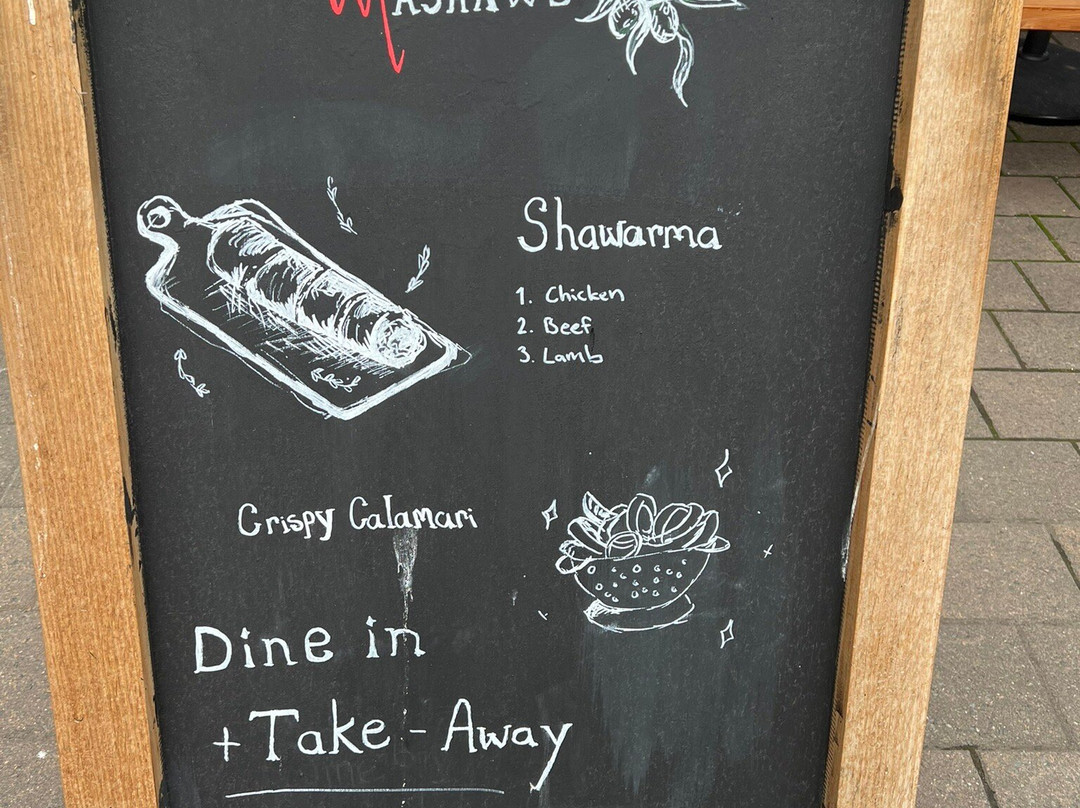 Shawarma
1. Chicken
2. Beef
3. Lamb
Crispy Calamari
Dine in
+ Take - Away